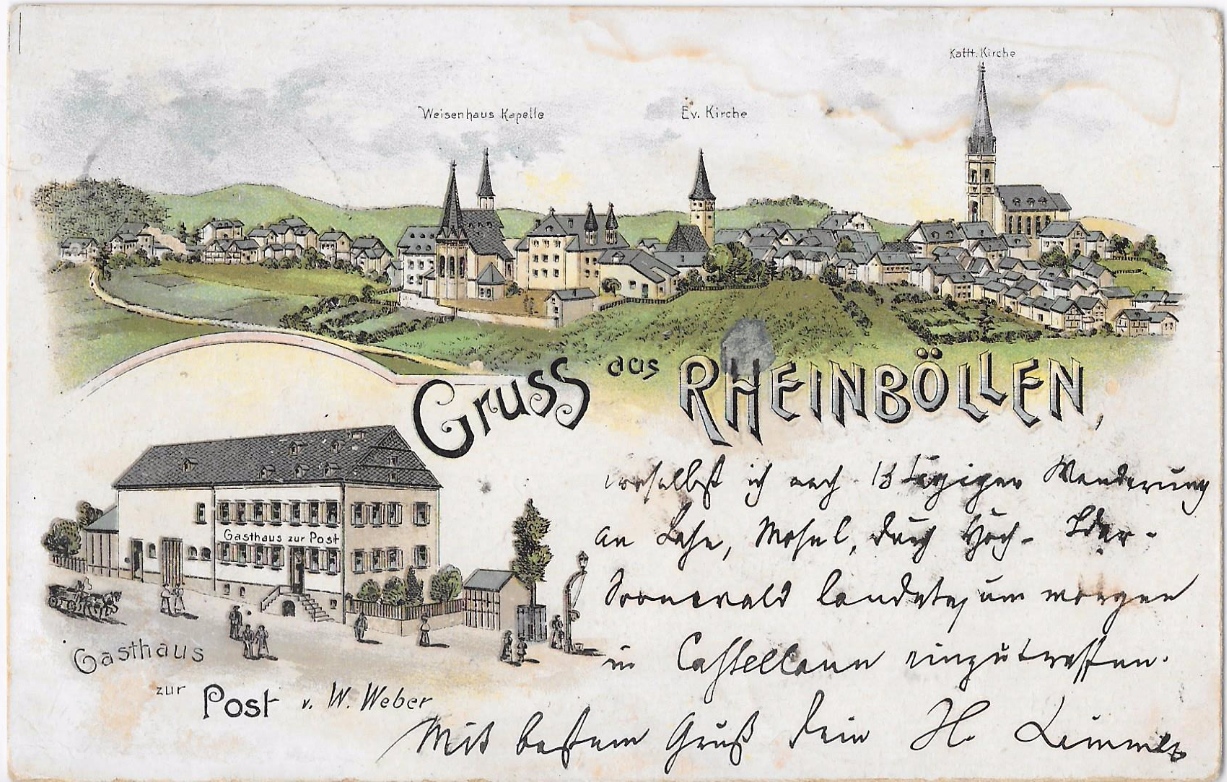 Kath. Kirche
Weisenhaus Kapelle
Ev. Kirche
Gruss aus RHEINBÖLLEN,
woselbst ich nach 13 tägiger Wanderung
an Lahn, Mosel, durch Hoch- Idar-
Soonwald landete, um morgen
in Castellaun einzutreffen.
Mit bestem Gruß Dein H.
Gasthaus zur Post
Gasthaus
zur Post v. W. Weber